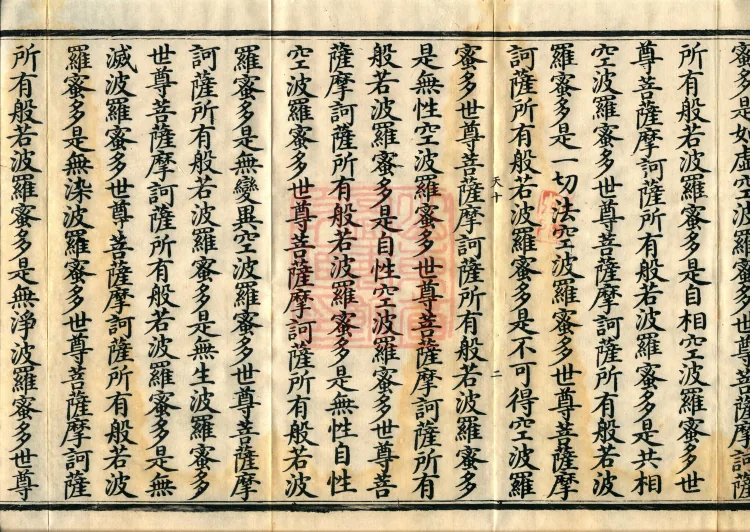 蜜多是如虛空波羅蜜多世尊菩薩摩訶薩
所有般若波羅蜜多是自相空波羅蜜多世
尊菩薩摩訶薩所有般若波羅蜜多是共相
空波羅蜜多世尊菩薩摩訶薩所有般若波
羅蜜多是一切法空波羅蜜多世尊菩薩摩
訶薩所有般若波羅蜜多是不可得空波羅
天十 二
蜜多世尊菩薩摩訶薩所有般若波羅蜜多
是無性空波羅蜜多世尊菩薩摩訶薩所有
般若波羅蜜多是自性空波羅蜜多世尊菩
薩摩訶薩所有般若波羅蜜多是無性自性
空波羅蜜多世尊菩薩摩訶薩所有般若波
羅蜜多是無變異空波羅蜜多世尊菩薩摩
訶薩所有般若波羅蜜多是無生波羅蜜多
世尊菩薩摩訶薩所有般若波羅蜜多是無
滅波羅蜜多世尊菩薩摩訶薩所有般若波
羅蜜多是無染波羅蜜多世尊菩薩摩訶薩
所有般若波羅蜜多是無淨波羅蜜多世尊